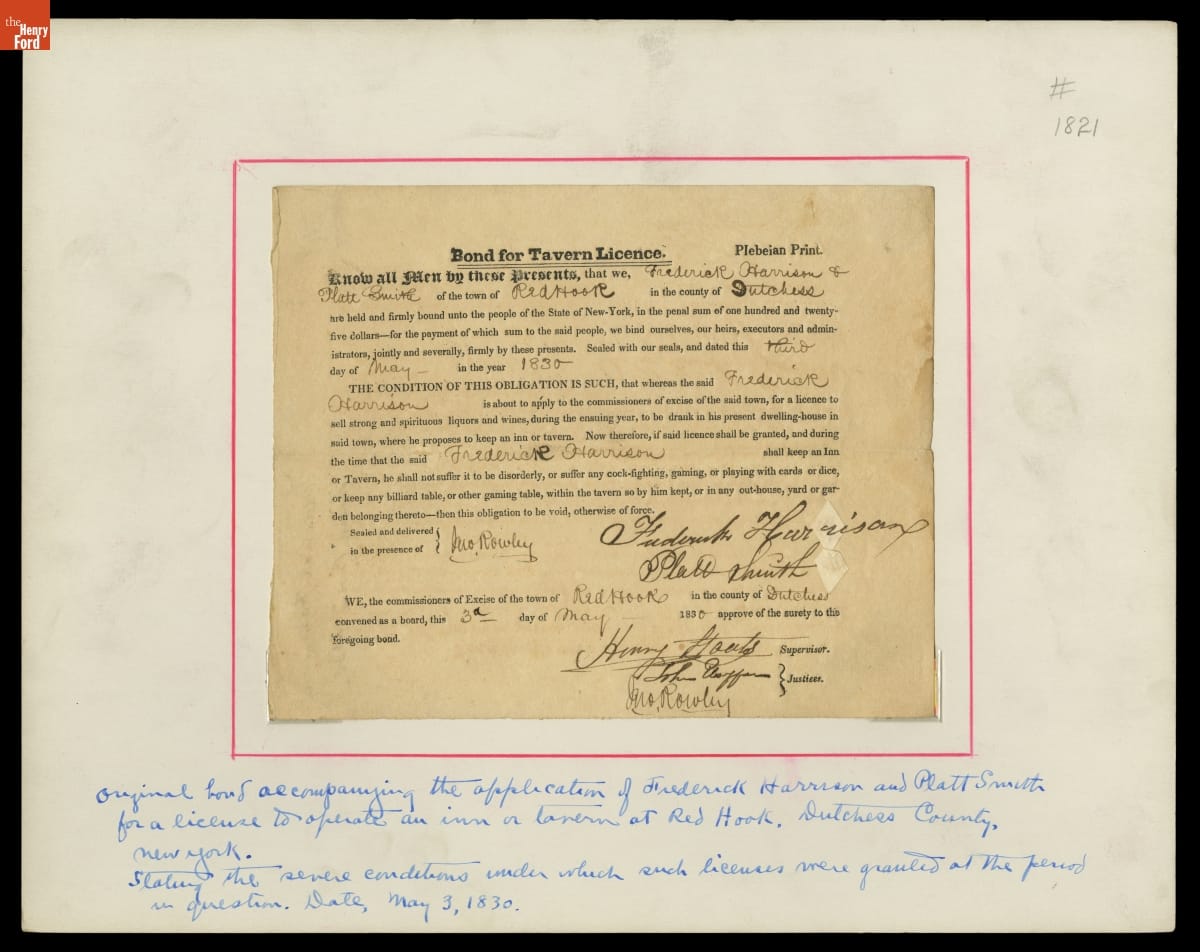 the
Henry
Ford
#
1821
Bond for Tavern Licence. Plebeian Print.
Know all Men by these Presents, that we, Frederick Harrison &
Platt Smith of the town of Red Hook in the county of Dutchess
are held and firmly bound unto the people of the State of New-York, in the penal sum of one hundred and twenty-
five dollars—for the payment of which sum to the said people, we bind ourselves, our heirs, executors and admin-
istrators, jointly and severally, firmly by these presents. Sealed with our seals, and dated this third
day of May in the year 1830
THE CONDITION OF THIS OBLIGATION IS SUCH, that whereas the said Frederick
Harrison is about to apply to the commissioners of excise of the said town, for a licence to
sell strong and spirituous liquors and wines, during the ensuing year, to be drank in his present dwelling-house in
said town, where he proposes to keep an inn or tavern. Now therefore, if said licence shall be granted, and during
the time that the said Frederick Harrison shall keep an Inn
or Tavern, he shall not suffer it to be disorderly, or suffer any cock-fighting, gaming, or playing with cards or dice,
or keep any billiard table, or other gaming table, within the tavern so by him kept, or in any out-house, yard or gar-
den belonging thereto—then this obligation to be void, otherwise of force.
Sealed and delivered
in the presence of } Jno. Rowley
Frederick Harrison
Platt Smith
WE, the commissioners of Excise of the town of Red Hook in the county of Dutchess
convened as a board, this 3d day of May 1830 approve of the surety to the
foregoing bond.
Henry Staats Supervisor.
John } Justices.
Jno. Rowley
Original bond accompanying the application of Frederick Harrison and Platt Smith
for a license to operate an inn or tavern at Red Hook, Dutchess County,
New York.
Stating the severe conditions under which such licenses were granted at the period
in question. Date, May 3, 1830.